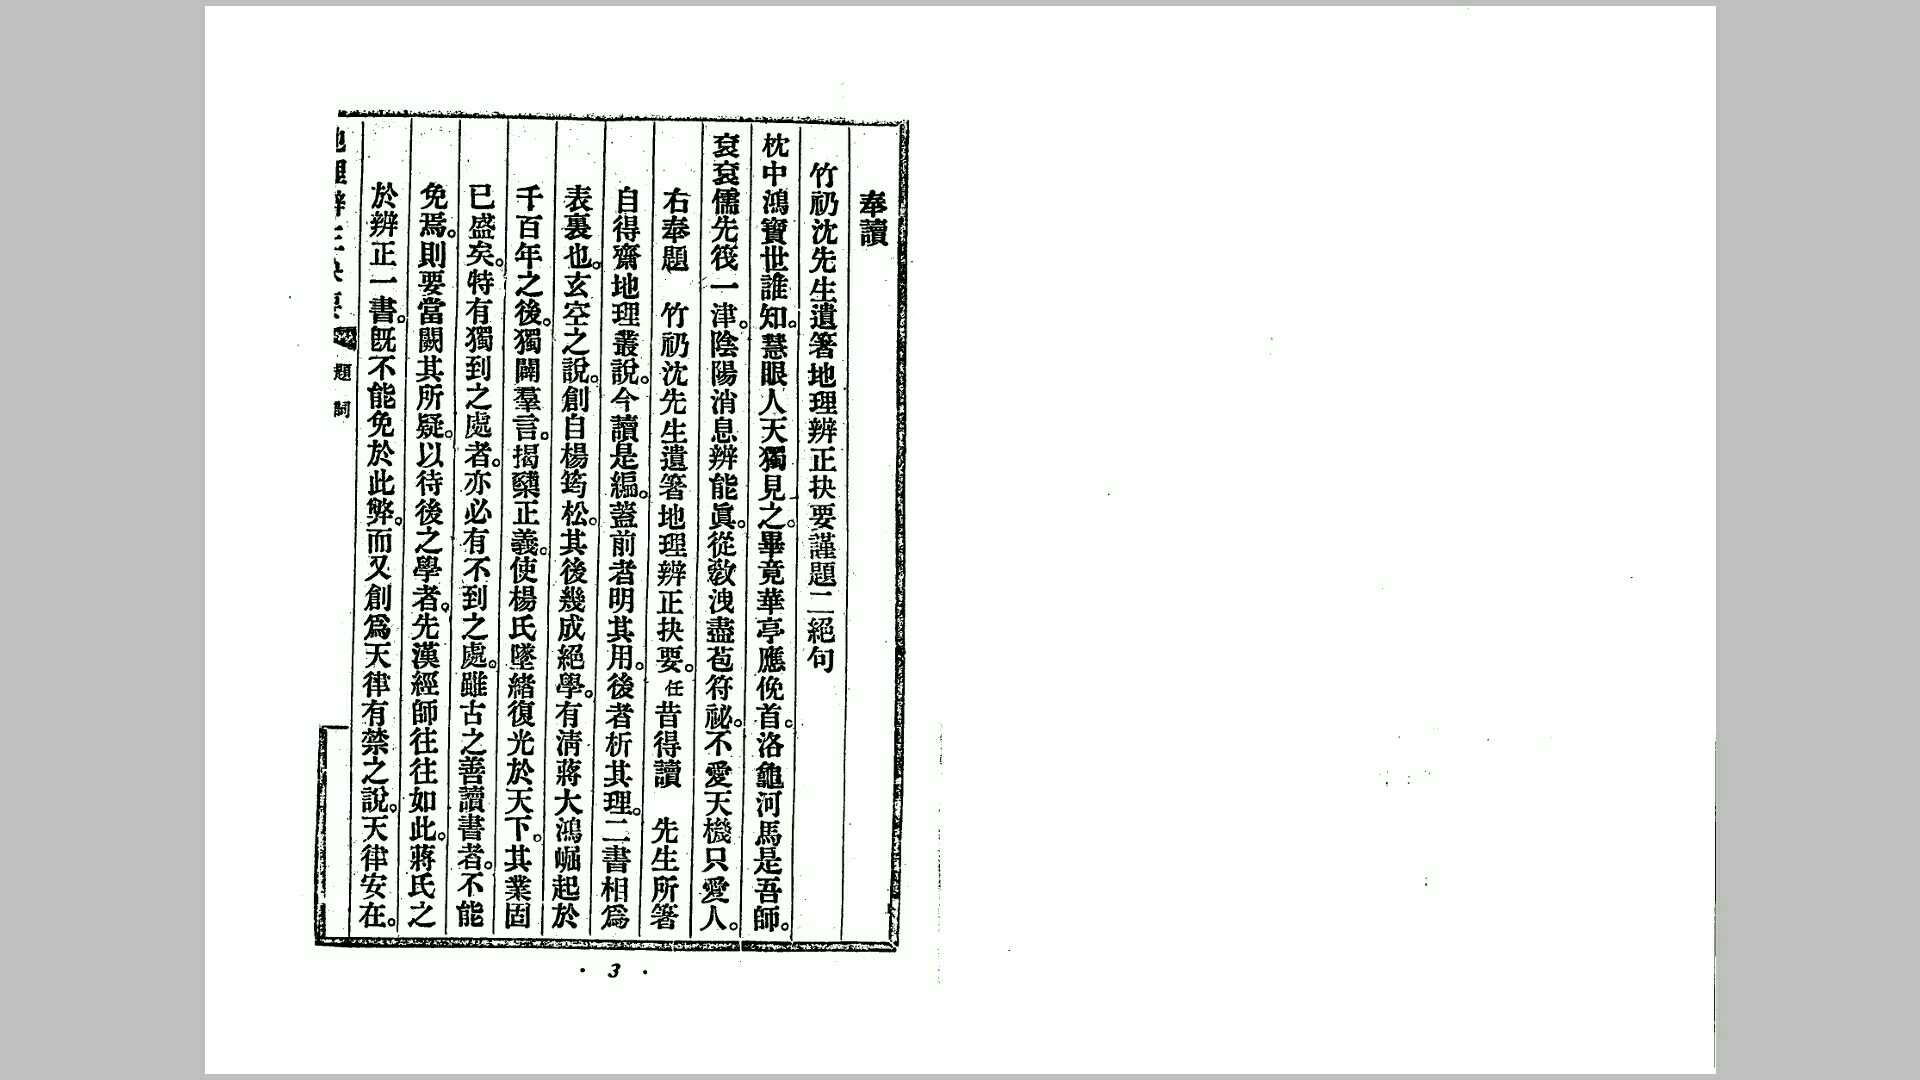 奉讀
竹礽沈先生遺箸地理辨正抉要謹題二絕句
枕中鴻寶世誰知。慧眼人天獨見之。畢竟華亭應俛首。洛龜河馬是吾師。
袞袞儒先筏一津。陰陽消息辨能眞。從敎洩盡苞符祕。不愛天機只愛人。
右奉題　竹礽沈先生遺箸地理辨正抉要。任昔得讀　先生所箸
自得齋地理叢說。今讀是編。蓋前者明其用。後者析其理。二書相爲
表裏也。玄空之說。創自楊筠松。其後幾成絕學。有淸蔣大鴻崛起於
千百年之後。獨闢羣言。揭櫫正義。使楊氏墜緖復光於天下。其業固
已盛矣。特有獨到之處者。亦必有不到之處。雖古之善讀書者。不能
免焉。則要當闕其所疑。以待後之學者。先漢經師往往如此。蔣氏之
於辨正一書。旣不能免於此弊。而又創爲天律有禁之說。天律安在。
地理辨正抉要　題詞
· 3 ·